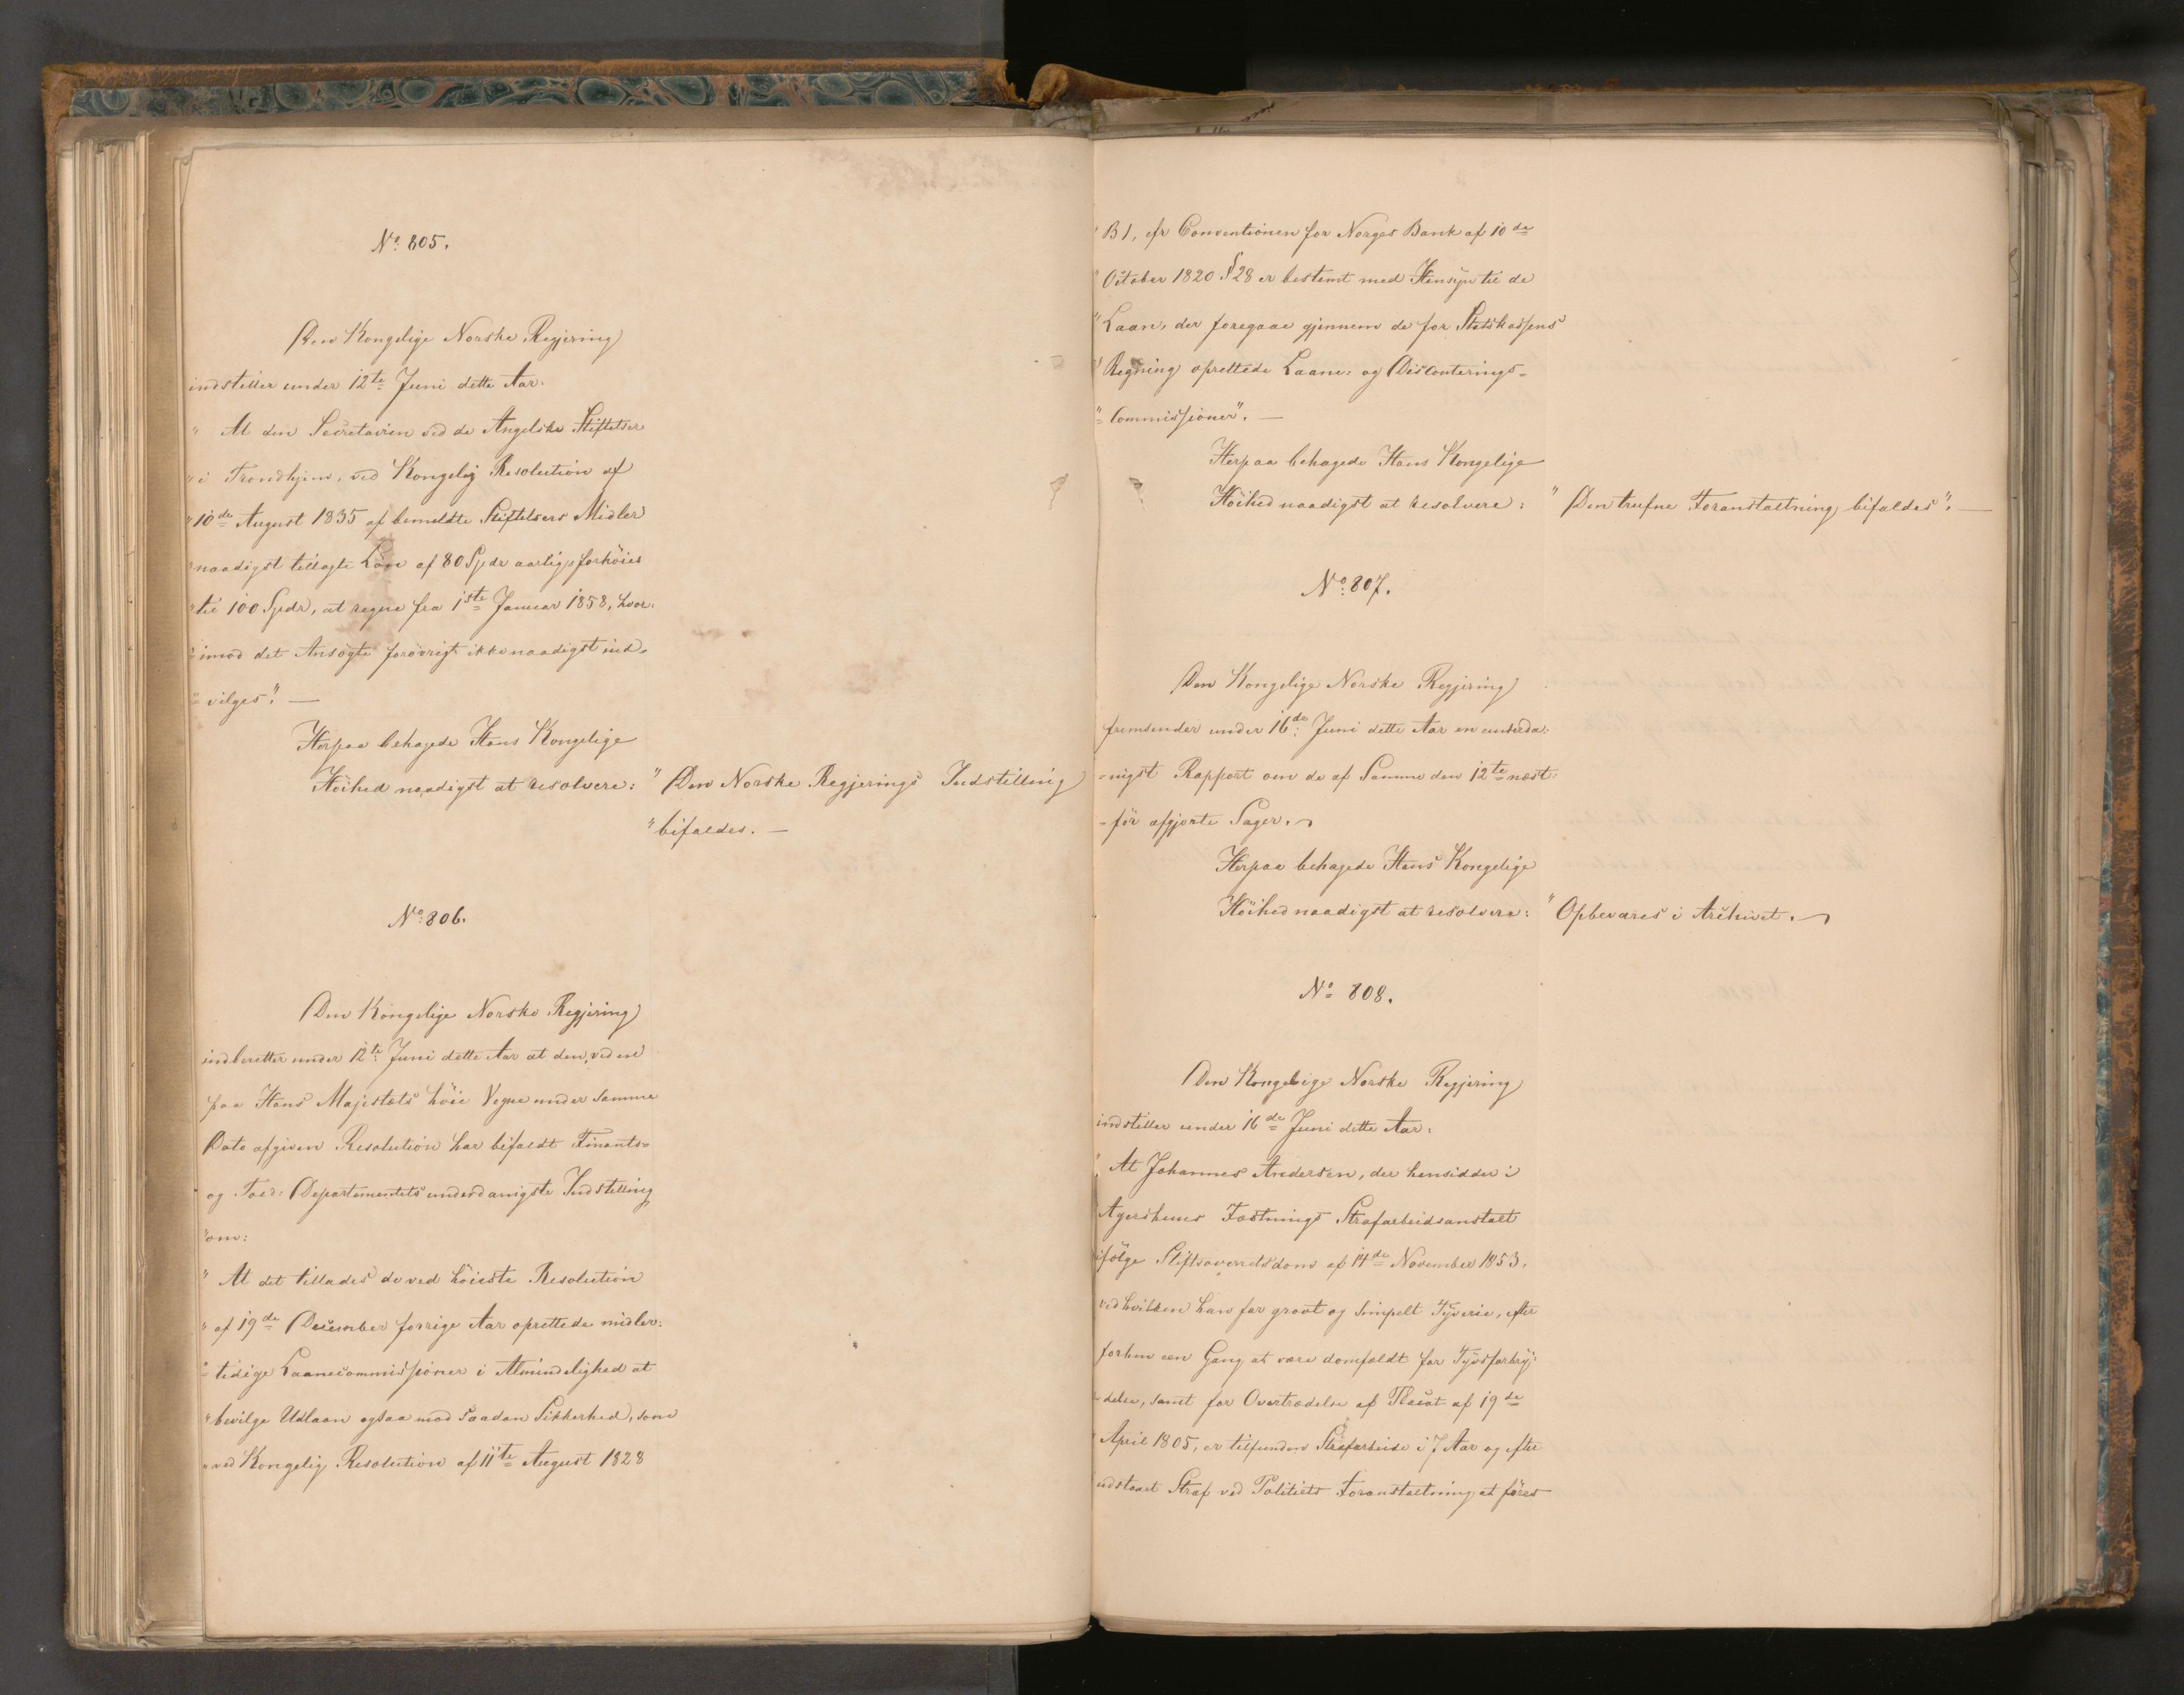 No. 805.
Den Kongelige Norske Regjering
indstiller under 12te Juni dette Aar:
" At den Secretairen ved de Angelske Stiftelser
" i Trondhjem, ved Kongelig Resolution af
" 10de August 1835 af bemeldte Stiftelsers Midler
" naadigst tillagte Løn af 80 Spdr aarlig forhöies
" til 100 Spdr, at regne fra 1ste Januar 1858, hvor-
"-imod det Ansögte forövrigt ikke naadigst ind-
"-vilges". —
Herpaa behagede Hans Kongelige
Höihed naadigst at resolvere: " Den Norske Regjerings Indstilling
" bifaldes. —
No. 806.
Den Kongelige Norske Regjering
indberetter under 12te Juni dette Aar at den, ved en
paa Hans Majestæts höie Vegne under samme
Dato afgiven Resolution har bifaldt Finants-
og Told-Departementets underdanigste Indstilling
"om:
" At det tillades de ved höieste Resolution
" af 19de December forrige Aar oprettede midler-
"-tidige Laanecommissioner i Almindelighed at
" bevilge Udlaan ogsaa mod saadan Sikkerhed, som
" ved Kongelig Resolution af 11te August 1828
" B1, cfr Conventionen for Norges Bank af 10de
" October 1820 §28 er bestemt med Hensyn til de
" Laan, der foregaae gjennem de for Statskassens
" Regning oprettede Laane- og Disconterings-
"-Commissioner". —
Herpaa behagede Hans Kongelige
Höihed naadigst at resolvere: " Den trufne Foranstaltning bifaldes". —
No. 807.
Den Kongelige Norske Regjering
fremsender under 16de Juni dette Aar en underda-
-nigst Rapport om de af Samme den 12te næst-
-för afgjorte Sager.
Herpaa behagede Hans Kongelige
Höihed naadigst at resolvere: " Opbevares i Archivet.
No. 808.
Den Kongelige Norske Regjering
indstiller under 16de Juni dette Aar:
" At Johannes Andersen, der hensidder i
" Agershuus Fæstnings Strafarbeidsanstalt
ifölge Stiftsoverretsdom af 14de November 1853,
ved hvilken han for grovt og simpelt Tyverie, efter
forhen een Gang at være domfældt for Tyvsforbry-
-delse, samt for Overtrædelse af Placat af 19de
" April 1805, er tilfunden Strafarbeide i 7 Aar og efter
udstaaet Straf ved Politiets Foranstaltning at föres